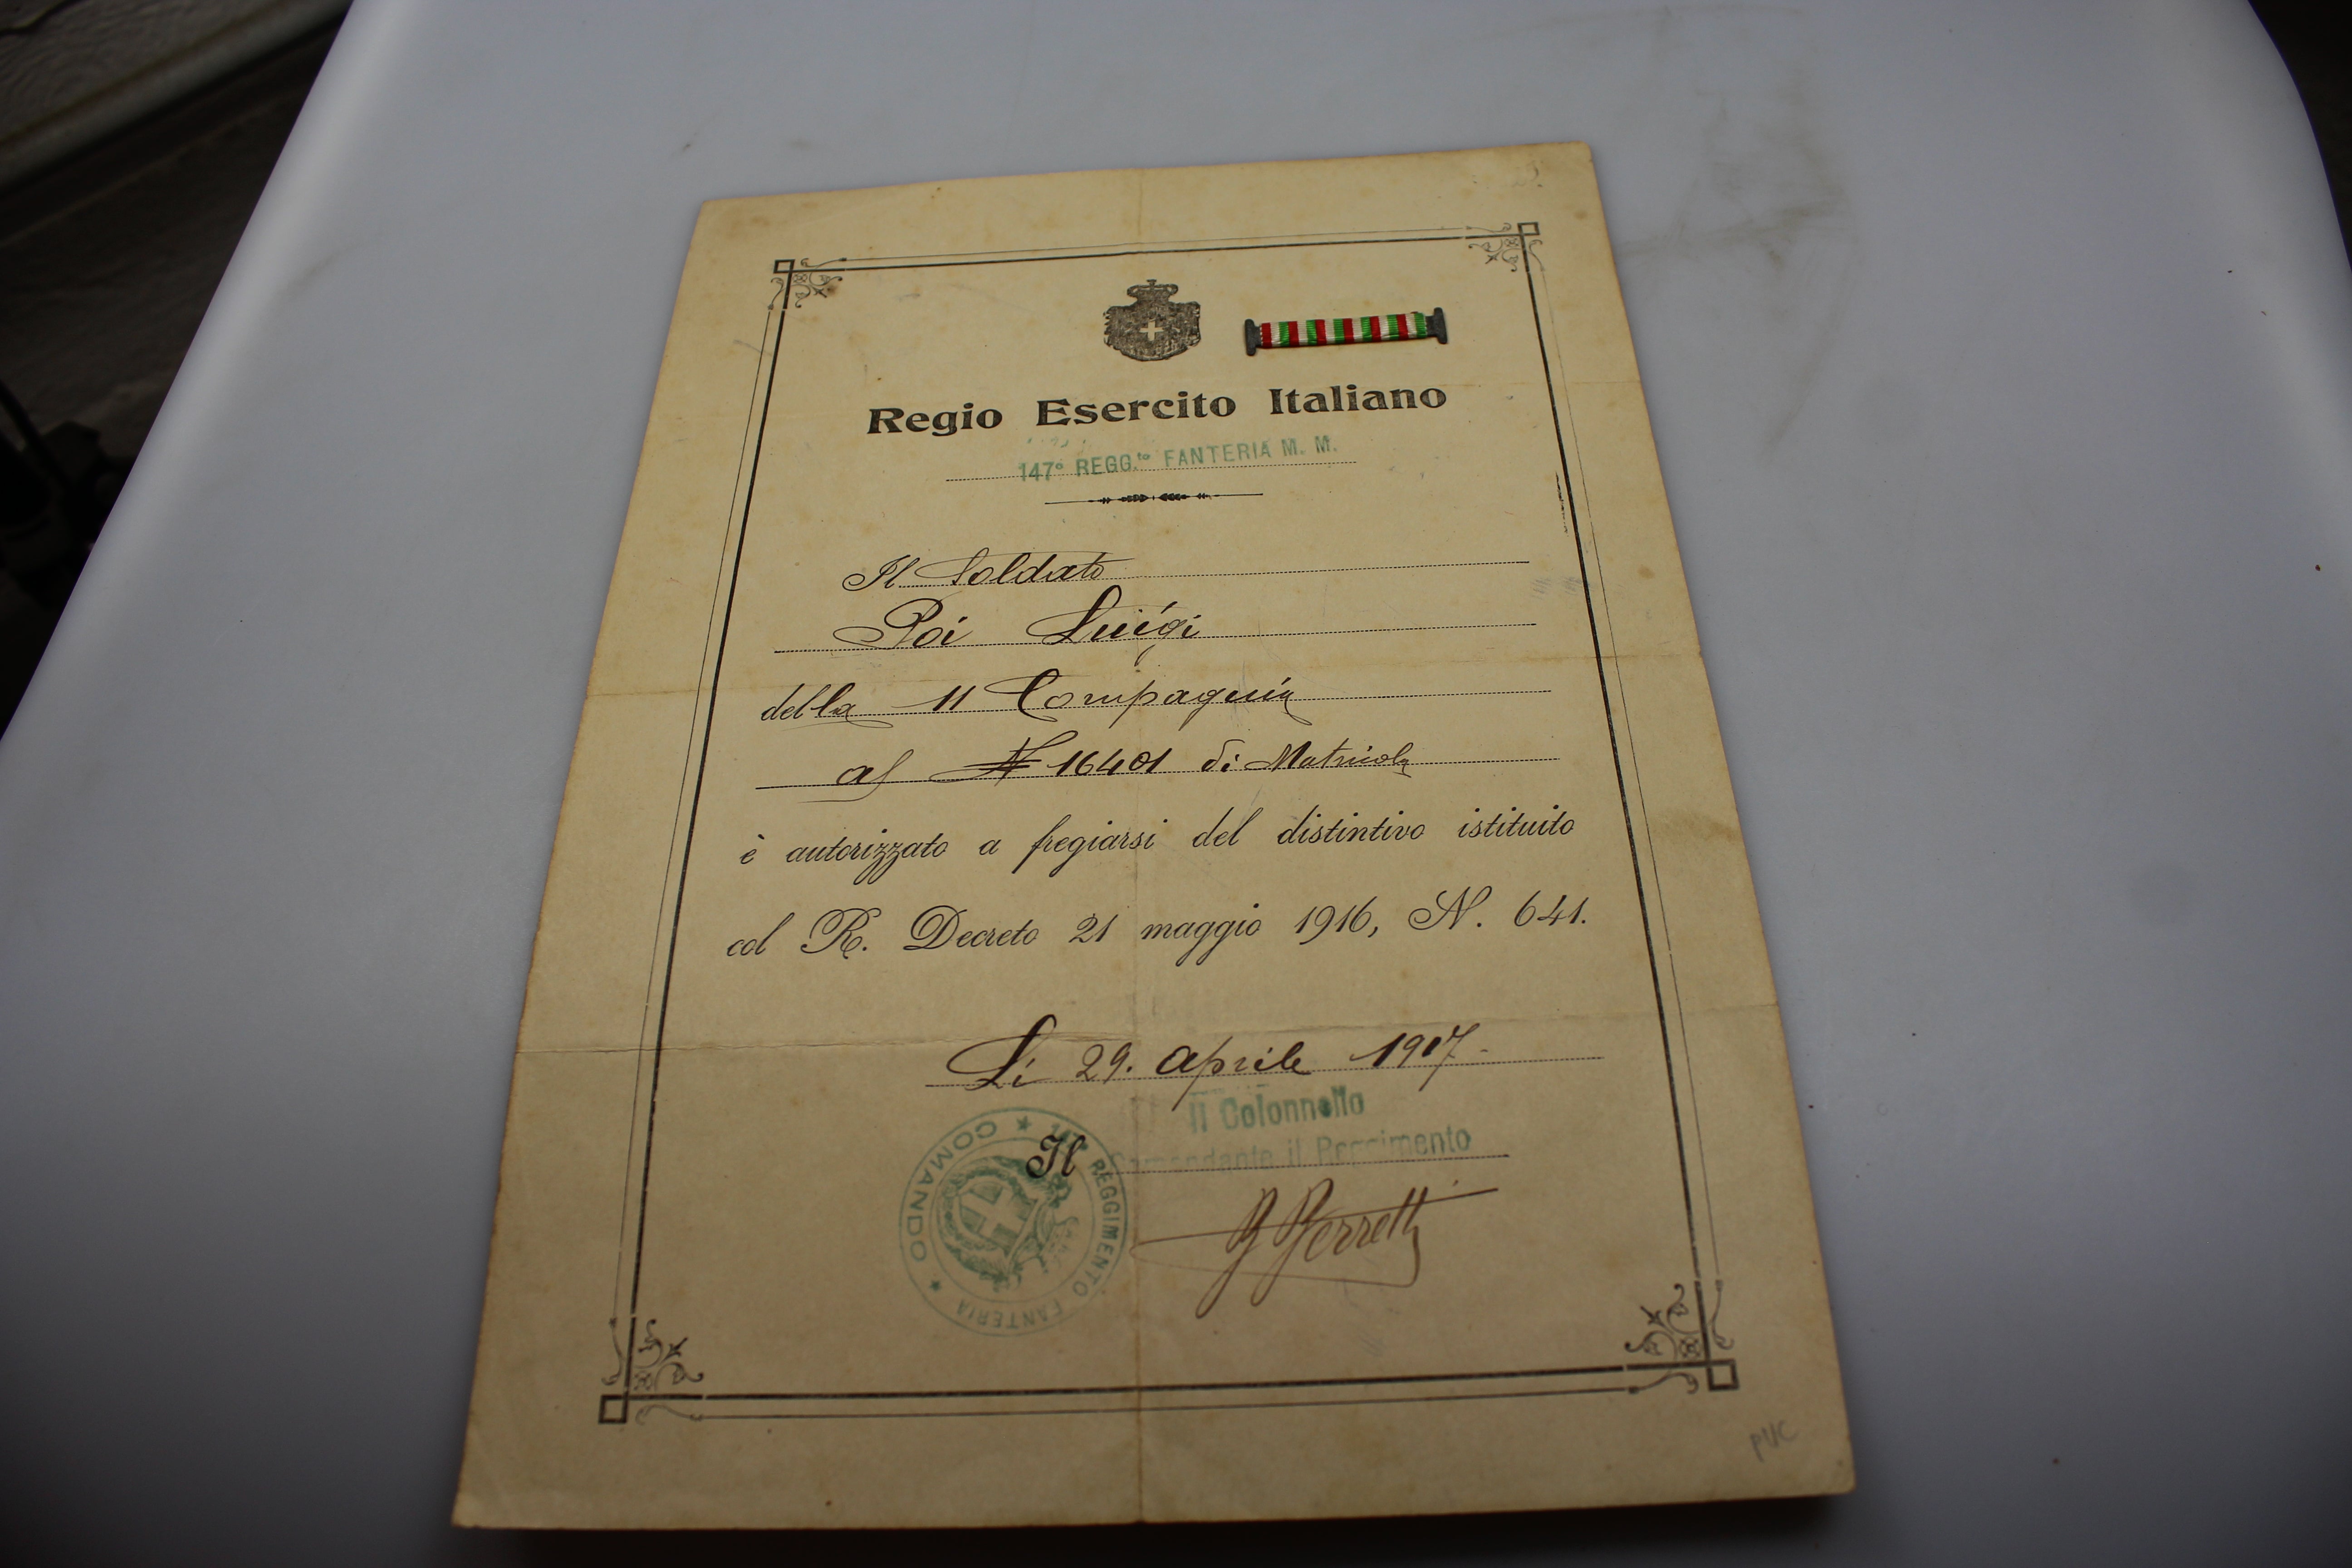 Regio Esercito Italiano
147° REGG.to FANTERIA M. M.
Il Soldato
Poi Luigi
della 11 Compagnia
al N 16401 di Matricola
è autorizzato a fregiarsi del distintivo istituito
col R. Decreto 21 maggio 1916, N. 641.
Li 29. Aprile 1917
Il Colonnello
Il Comandante il Reggimento
COMANDO ★ 147° REGGIMENTO FANTERIA ★
PUC